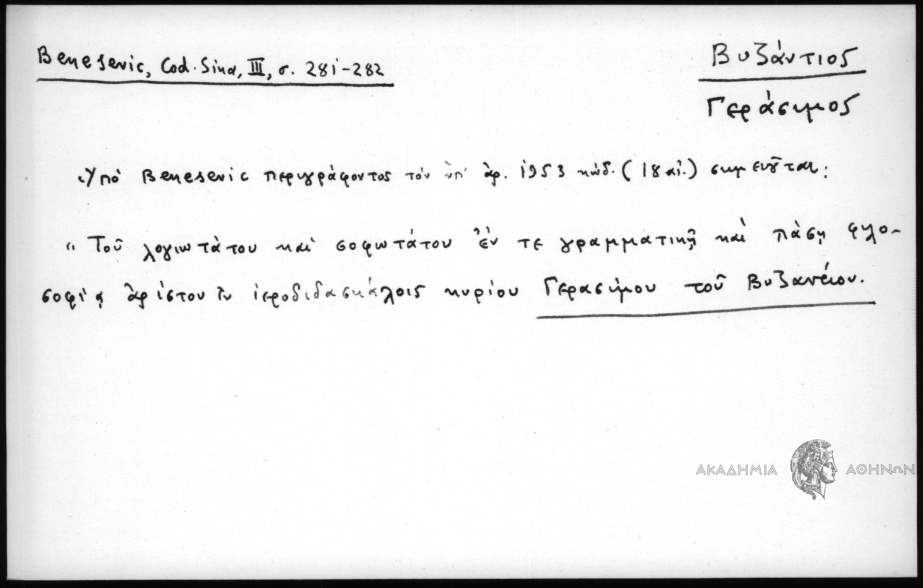 Benesevic, Cod. Sina, III, σ. 281-282
Βυζάντιος
Γεράσιμος
Ὑπό Benesevic περιγράφοντος τόν ὑπ' ἀρ. 1953 κώδ. (18 αἰ.) σημειοῦται:
"Τοῦ λογιωτάτου καί σοφωτάτου ἔν τε γραμματικῇ καί πάσῃ φιλο-
σοφίᾳ ἀρίστου ἐν ἱεροδιδασκάλοις κυρίου Γερασίμου τοῦ Βυζαντίου.
ΑΚΑΔΗΜΙΑ ΑΘΗΝΩΝ